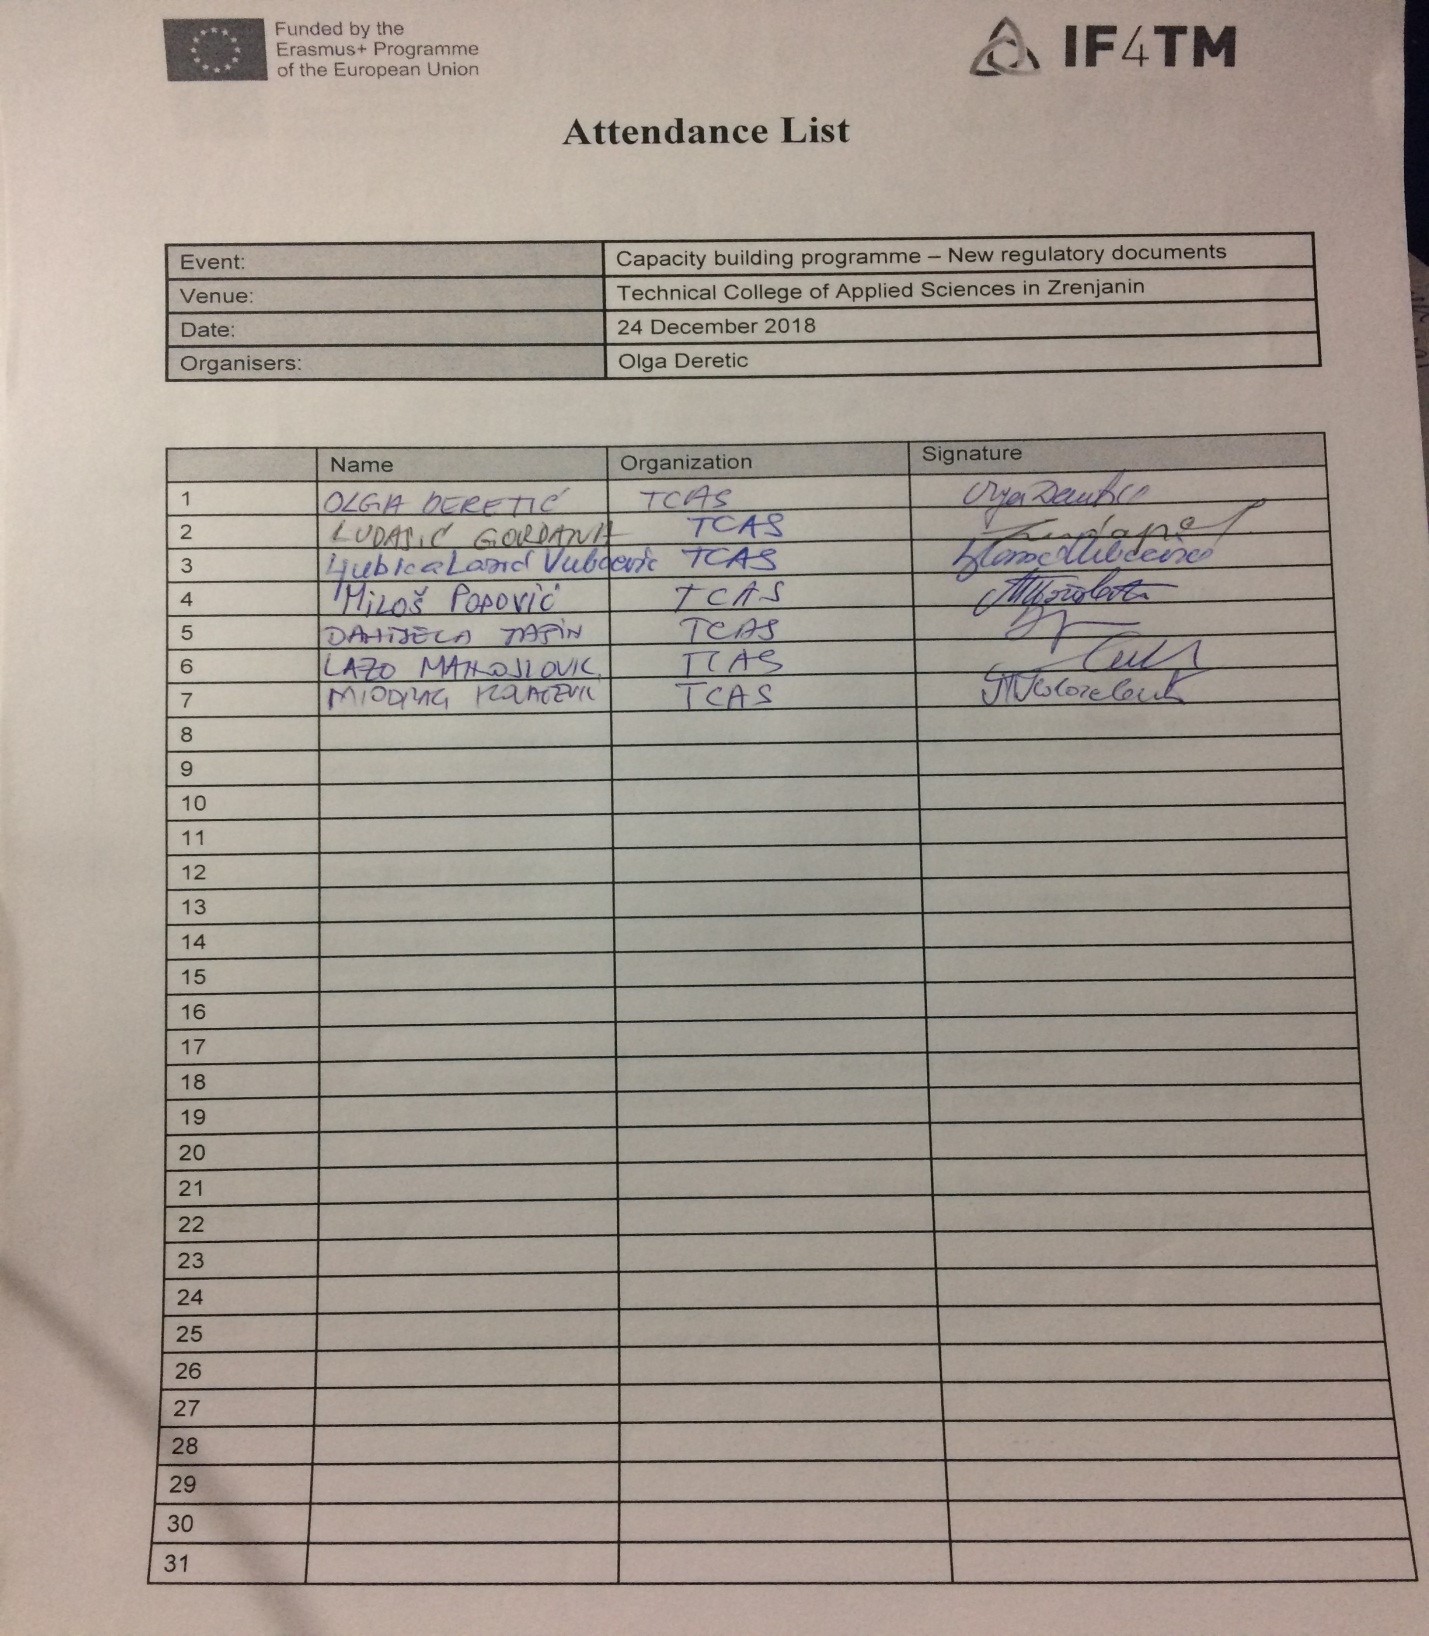 Funded by the
Erasmus+ Programme
of the European Union
IF4TM
Attendance List
Event: Capacity building programme – New regulatory documents
Venue: Technical College of Applied Sciences in Zrenjanin
Date: 24 December 2018
Organisers: Olga Deretic
Name Organization Signature
1 OLGA DERETIĆ TCAS
2 LUDAJIĆ GORDANA TCAS
3 Ljubica TCAS
4 MILOŠ POPOVIĆ TCAS
5 DANIJELA TCAS
6 LAZO MANOJLOVIC TCAS
7 MIODRAG TCAS
8
9
10
11
12
13
14
15
16
17
18
19
20
21
22
23
24
25
26
27
28
29
30
31